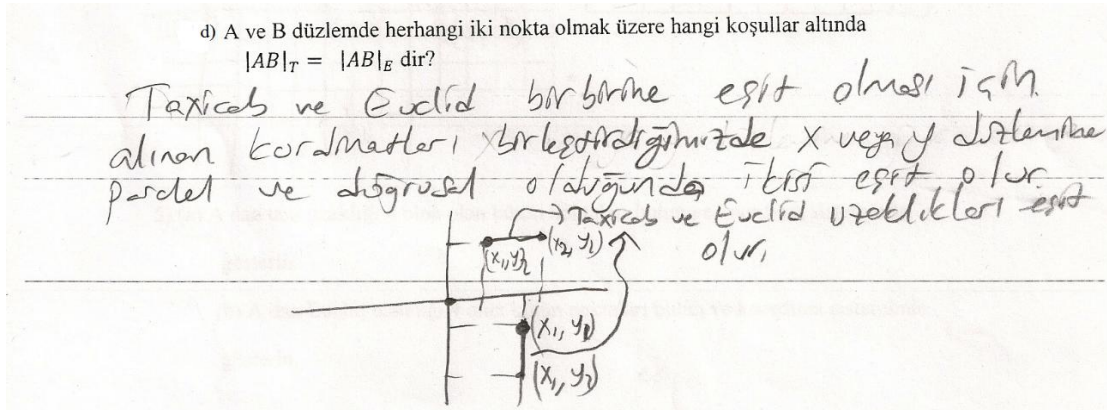 d) A ve B düzlemde herhangi iki nokta olmak üzere hangi koşullar altında
|AB|_T = |AB|_E dir?
Taxicab ve Euclid birbirine eşit olması için
alınan kordinatları birleştirdiğimizde x veya y düzlemine
paralel ve doğrusal olduğunda ikisi eşit olur.
→ Taxicab ve Euclid uzaklıkları eşit
olur.
(x₂, y₁)
(x₁, y₁)
(x₁, y₁)
(x₁, y₂)